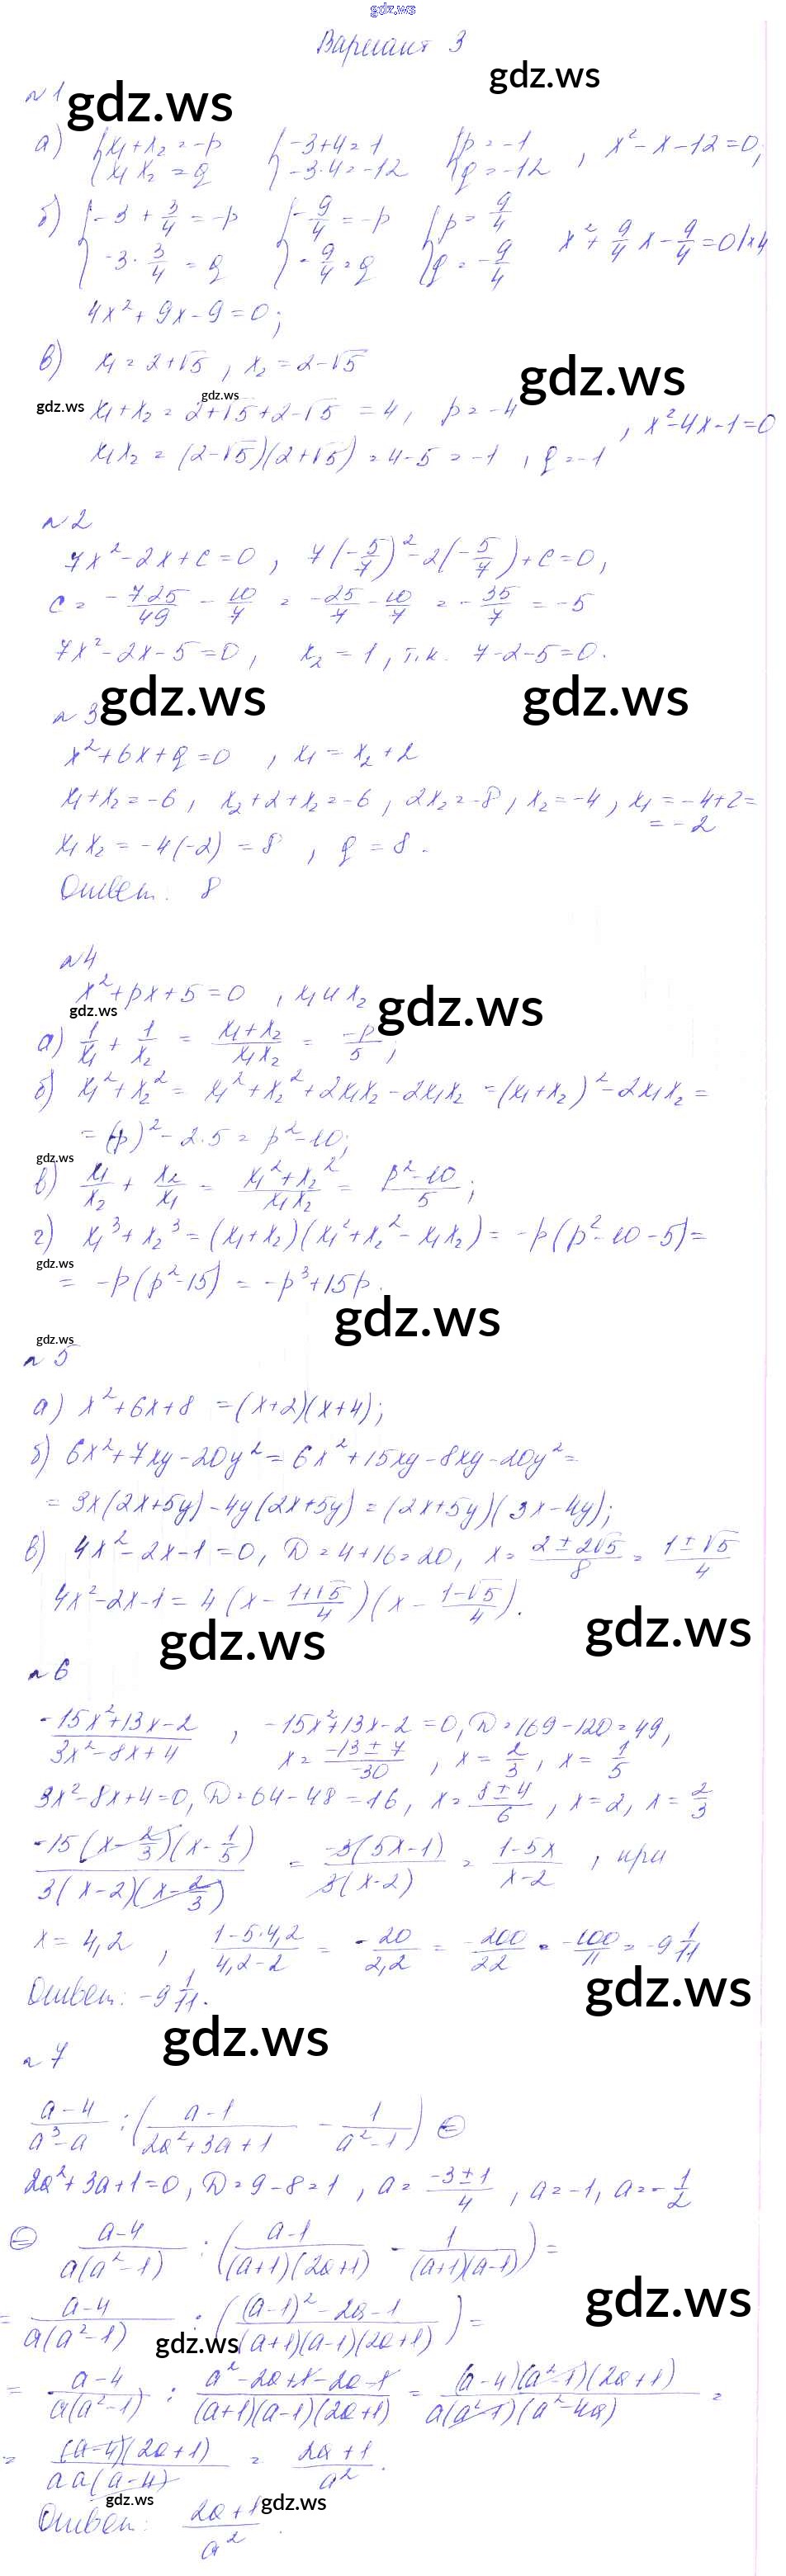 gdz.ws
Вариант 3
gdz.ws
№1 gdz.ws
а) {x₁+x₂=-p {-3+4=1 {p=-1 , x²-x-12=0;
{x₁x₂=q {-3·4=-12 {q=-12
б) {-3+3/4=-p {-9/4=-p {p=9/4 x²+9/4x-9/4=0|×4
{-3·3/4=q {-9/4=q {q=-9/4
4x²+9x-9=0;
в) x₁=2+√5, x₂=2-√5
gdz.ws
gdz.ws gdz.ws
x₁+x₂=2+√5+2-√5=4, p=-4
, x²-4x-1=0
x₁x₂=(2-√5)(2+√5)=4-5=-1, q=-1
№2
7x²-2x+c=0, 7(-5/7)²-2(-5/7)+c=0,
c=-7·25/49-10/7=-25/7-10/7=-35/7=-5
7x²-2x-5=0, x₂=1, т.к. 7-2-5=0.
№3 gdz.ws gdz.ws
x²+6x+q=0, x₁=x₂+2
x₁+x₂=-6, x₂+2+x₂=-6, 2x₂=-8, x₂=-4, x₁=-4+2=
=-2
x₁x₂=-4(-2)=8, q=8.
Ответ: 8
№4
x²+px+5=0, x₁ и x₂ gdz.ws
gdz.ws
а) 1/x₁+1/x₂=(x₁+x₂)/(x₁x₂)=-p/5;
б) x₁²+x₂²=x₁²+x₂²+2x₁x₂-2x₁x₂=(x₁+x₂)²-2x₁x₂=
=(-p)²-2·5=p²-10;
gdz.ws
в) x₁/x₂+x₂/x₁=(x₁²+x₂²)/(x₁x₂)=(p²-10)/5;
г) x₁³+x₂³=(x₁+x₂)(x₁²+x₂²-x₁x₂)=-p(p²-10-5)=
gdz.ws
=-p(p²-15)=-p³+15p.
gdz.ws
gdz.ws
№5
а) x²+6x+8=(x+2)(x+4);
б) 6x²+7xy-20y²=6x²+15xy-8xy-20y²=
=3x(2x+5y)-4y(2x+5y)=(2x+5y)(3x-4y);
в) 4x²-2x-1=0, D=4+16=20, x=(2±2√5)/8=(1±√5)/4
4x²-2x-1=4(x-(1+√5)/4)(x-(1-√5)/4).
gdz.ws gdz.ws
№6
(-15x²+13x-2)/(3x²-8x+4), -15x²+13x-2=0, D=169-120=49,
x=(-13±7)/-30, x=2/3, x=1/5
3x²-8x+4=0, D=64-48=16, x=(8±4)/6, x=2, x=2/3
(-15(x-2/3)(x-1/5))/(3(x-2)(x-2/3))=(-3(5x-1))/(3(x-2))=(1-5x)/(x-2), при
x=4,2, (1-5·4,2)/(4,2-2)=-20/2,2=-200/22=-100/11=-9 1/11
gdz.ws
Ответ: -9 1/11.
gdz.ws
№7
(a-4)/(a³-a):((a-1)/(2a²+3a+1)-1/(a²-1)) ⊜
2a²+3a+1=0, D=9-8=1, a=(-3±1)/4, a=-1, a=-1/2
⊜ (a-4)/(a(a²-1)):((a-1)/((a+1)(2a+1))-1/((a+1)(a-1)))=
gdz.ws
=(a-4)/(a(a²-1)):(((a-1)²-2a-1)/((a+1)(a-1)(2a+1)))=
gdz.ws
=(a-4)/(a(a²-1)):(a²-2a+1-2a-1)/((a+1)(a-1)(2a+1))=((a-4)(a²-1)(2a+1))/(a(a²-1)(a²-4a))=
=((a-4)(2a+1))/(aa(a-4))=(2a+1)/a².
gdz.ws gdz.ws
Ответ: (2a+1)/a².